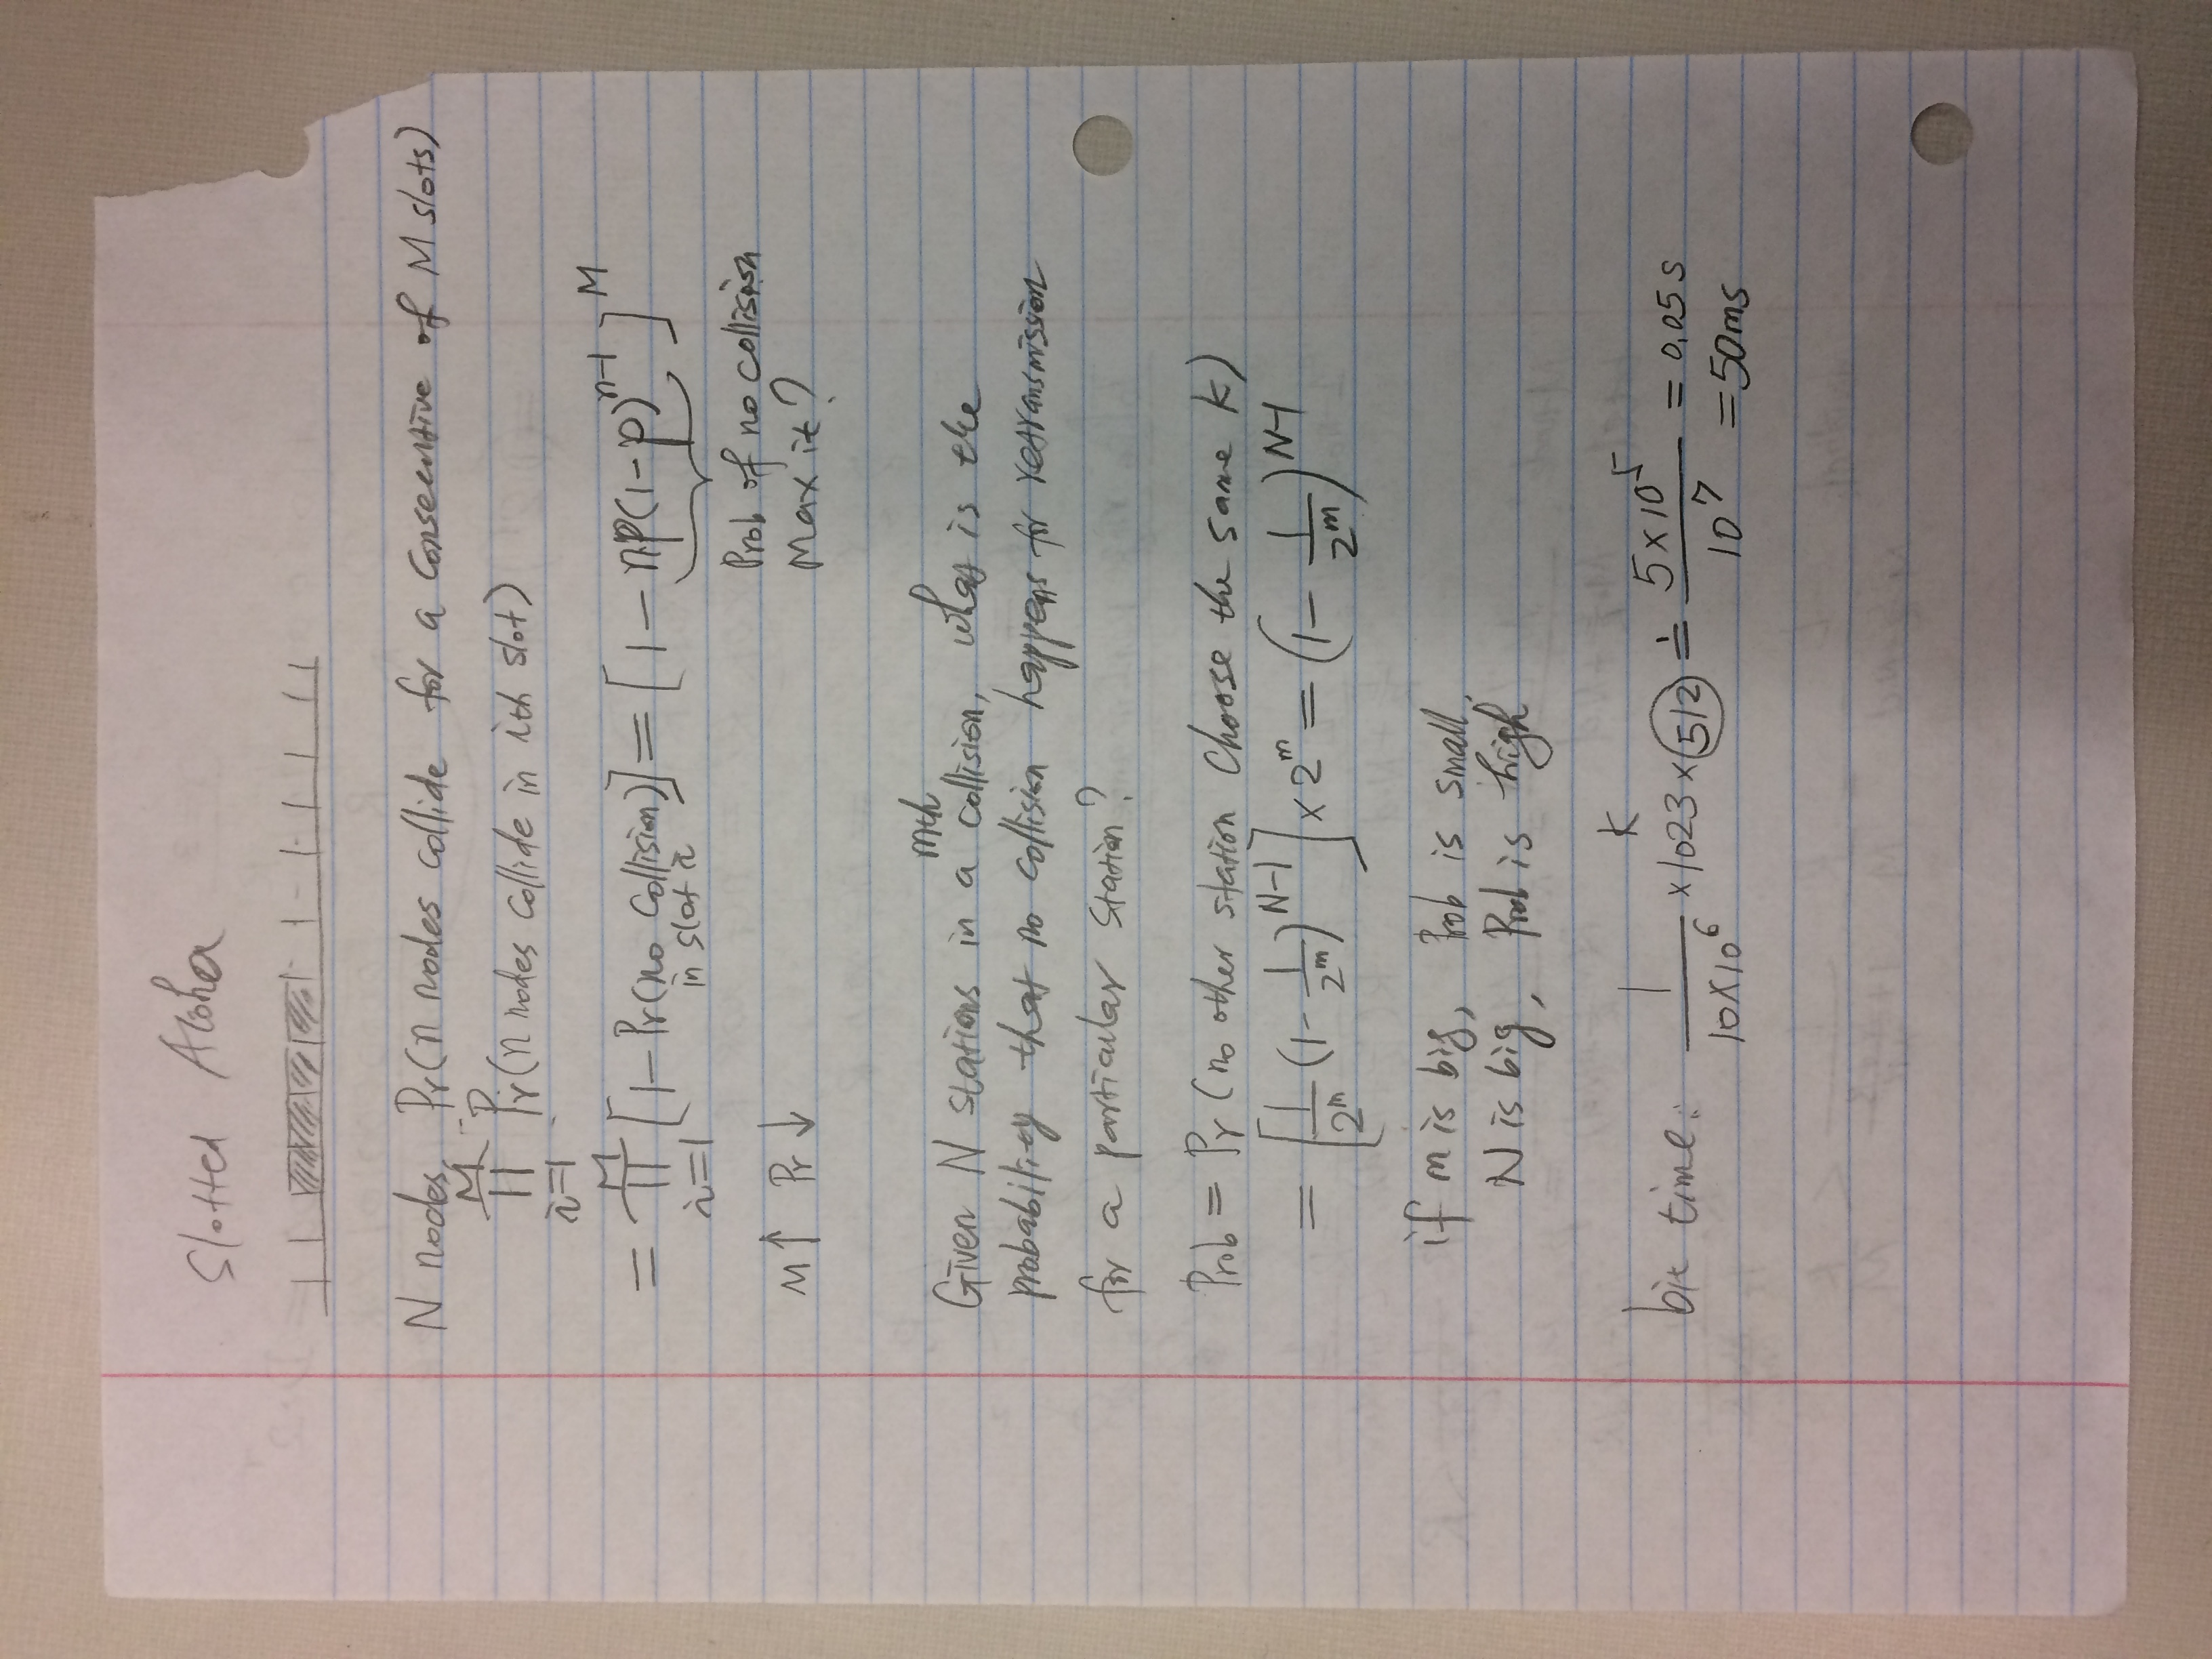 Slotted Aloha
N nodes, Pr(n nodes collide for a consecutive of M slots)
M
∏ Pr(n nodes collide in ith slot)
i=1
= ∏_{i=1}^{M} [1-Pr(no collision in slot i)] = [1-np(1-p)^{n-1}]^M
Prob of no collision
M↑ Pr↓ Max it?
mth
Given N stations in a collision, what is the
probability that no collision happens for retransmission
for a particular station?
Prob = Pr (no other station choose the same K)
= [1/2^m (1-1/2^m)^{N-1}] × 2^m = (1-1/2^m)^{N-1}
if m is big, Prob is small.
N is big, Prob is high
K
bit time: 1/(10×10^6) ×1023×512 ≐ 5×10^5/10^7 = 0.05 s
=50ms